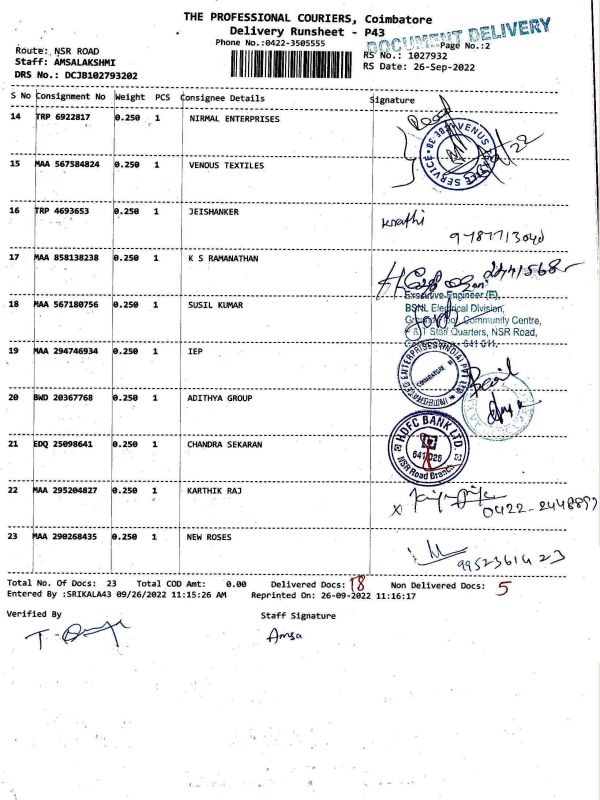 THE PROFESSIONAL COURIERS, Coimbatore
Delivery Runsheet - P43
DOCUMENT DELIVERY
Phone No.:0422-3505555
Page No.:2
Route: NSR ROAD
RS No.: 1027932
Staff: AMSALAKSHMI
RS Date: 26-Sep-2022
DRS No.: DCJB102793202
S No Consignment No Weight PCS Consignee Details Signature
14 TRP 6922817 0.250 1 NIRMAL ENTERPRISES
15 MAA 567584824 0.250 1 VENOUS TEXTILES
16 TRP 4693653 0.250 1 JEISHANKER
9787713040
17 MAA 858138238 0.250 1 K S RAMANATHAN
2441568
Executive Engineer (E),
18 MAA 567180756 0.250 1 SUSIL KUMAR
BSNL Electrical Division,
Community Centre,
Staff Quarters, NSR Road,
641 011.
19 MAA 294746934 0.250 1 IEP
COIMBATORE
20 BWD 20367768 0.250 1 ADITHYA GROUP
21 EDQ 25098641 0.250 1 CHANDRA SEKARAN
HDFC BANK LTD.
641 025
NSR Road Branch
22 MAA 295204827 0.250 1 KARTHIK RAJ
0422-2448897
23 MAA 290268435 0.250 1 NEW ROSES
9952361423
Total No. Of Docs: 23 Total COD Amt: 0.00 Delivered Docs: 18 Non Delivered Docs: 5
Entered By :SRIKALA43 09/26/2022 11:15:26 AM Reprinted On: 26-09-2022 11:16:17
Verified By Staff Signature
Amsa